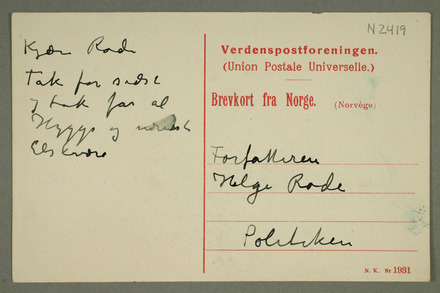 N2419
Kjære Rode
Tak for sidst
og tak for al
Hygge og
Verdenspostforeningen.
(Union Postale Universelle.)
Brevkort fra Norge. (Norvège)
Forfatteren
Helge Rode
Politiken
N. K. Nr 1931